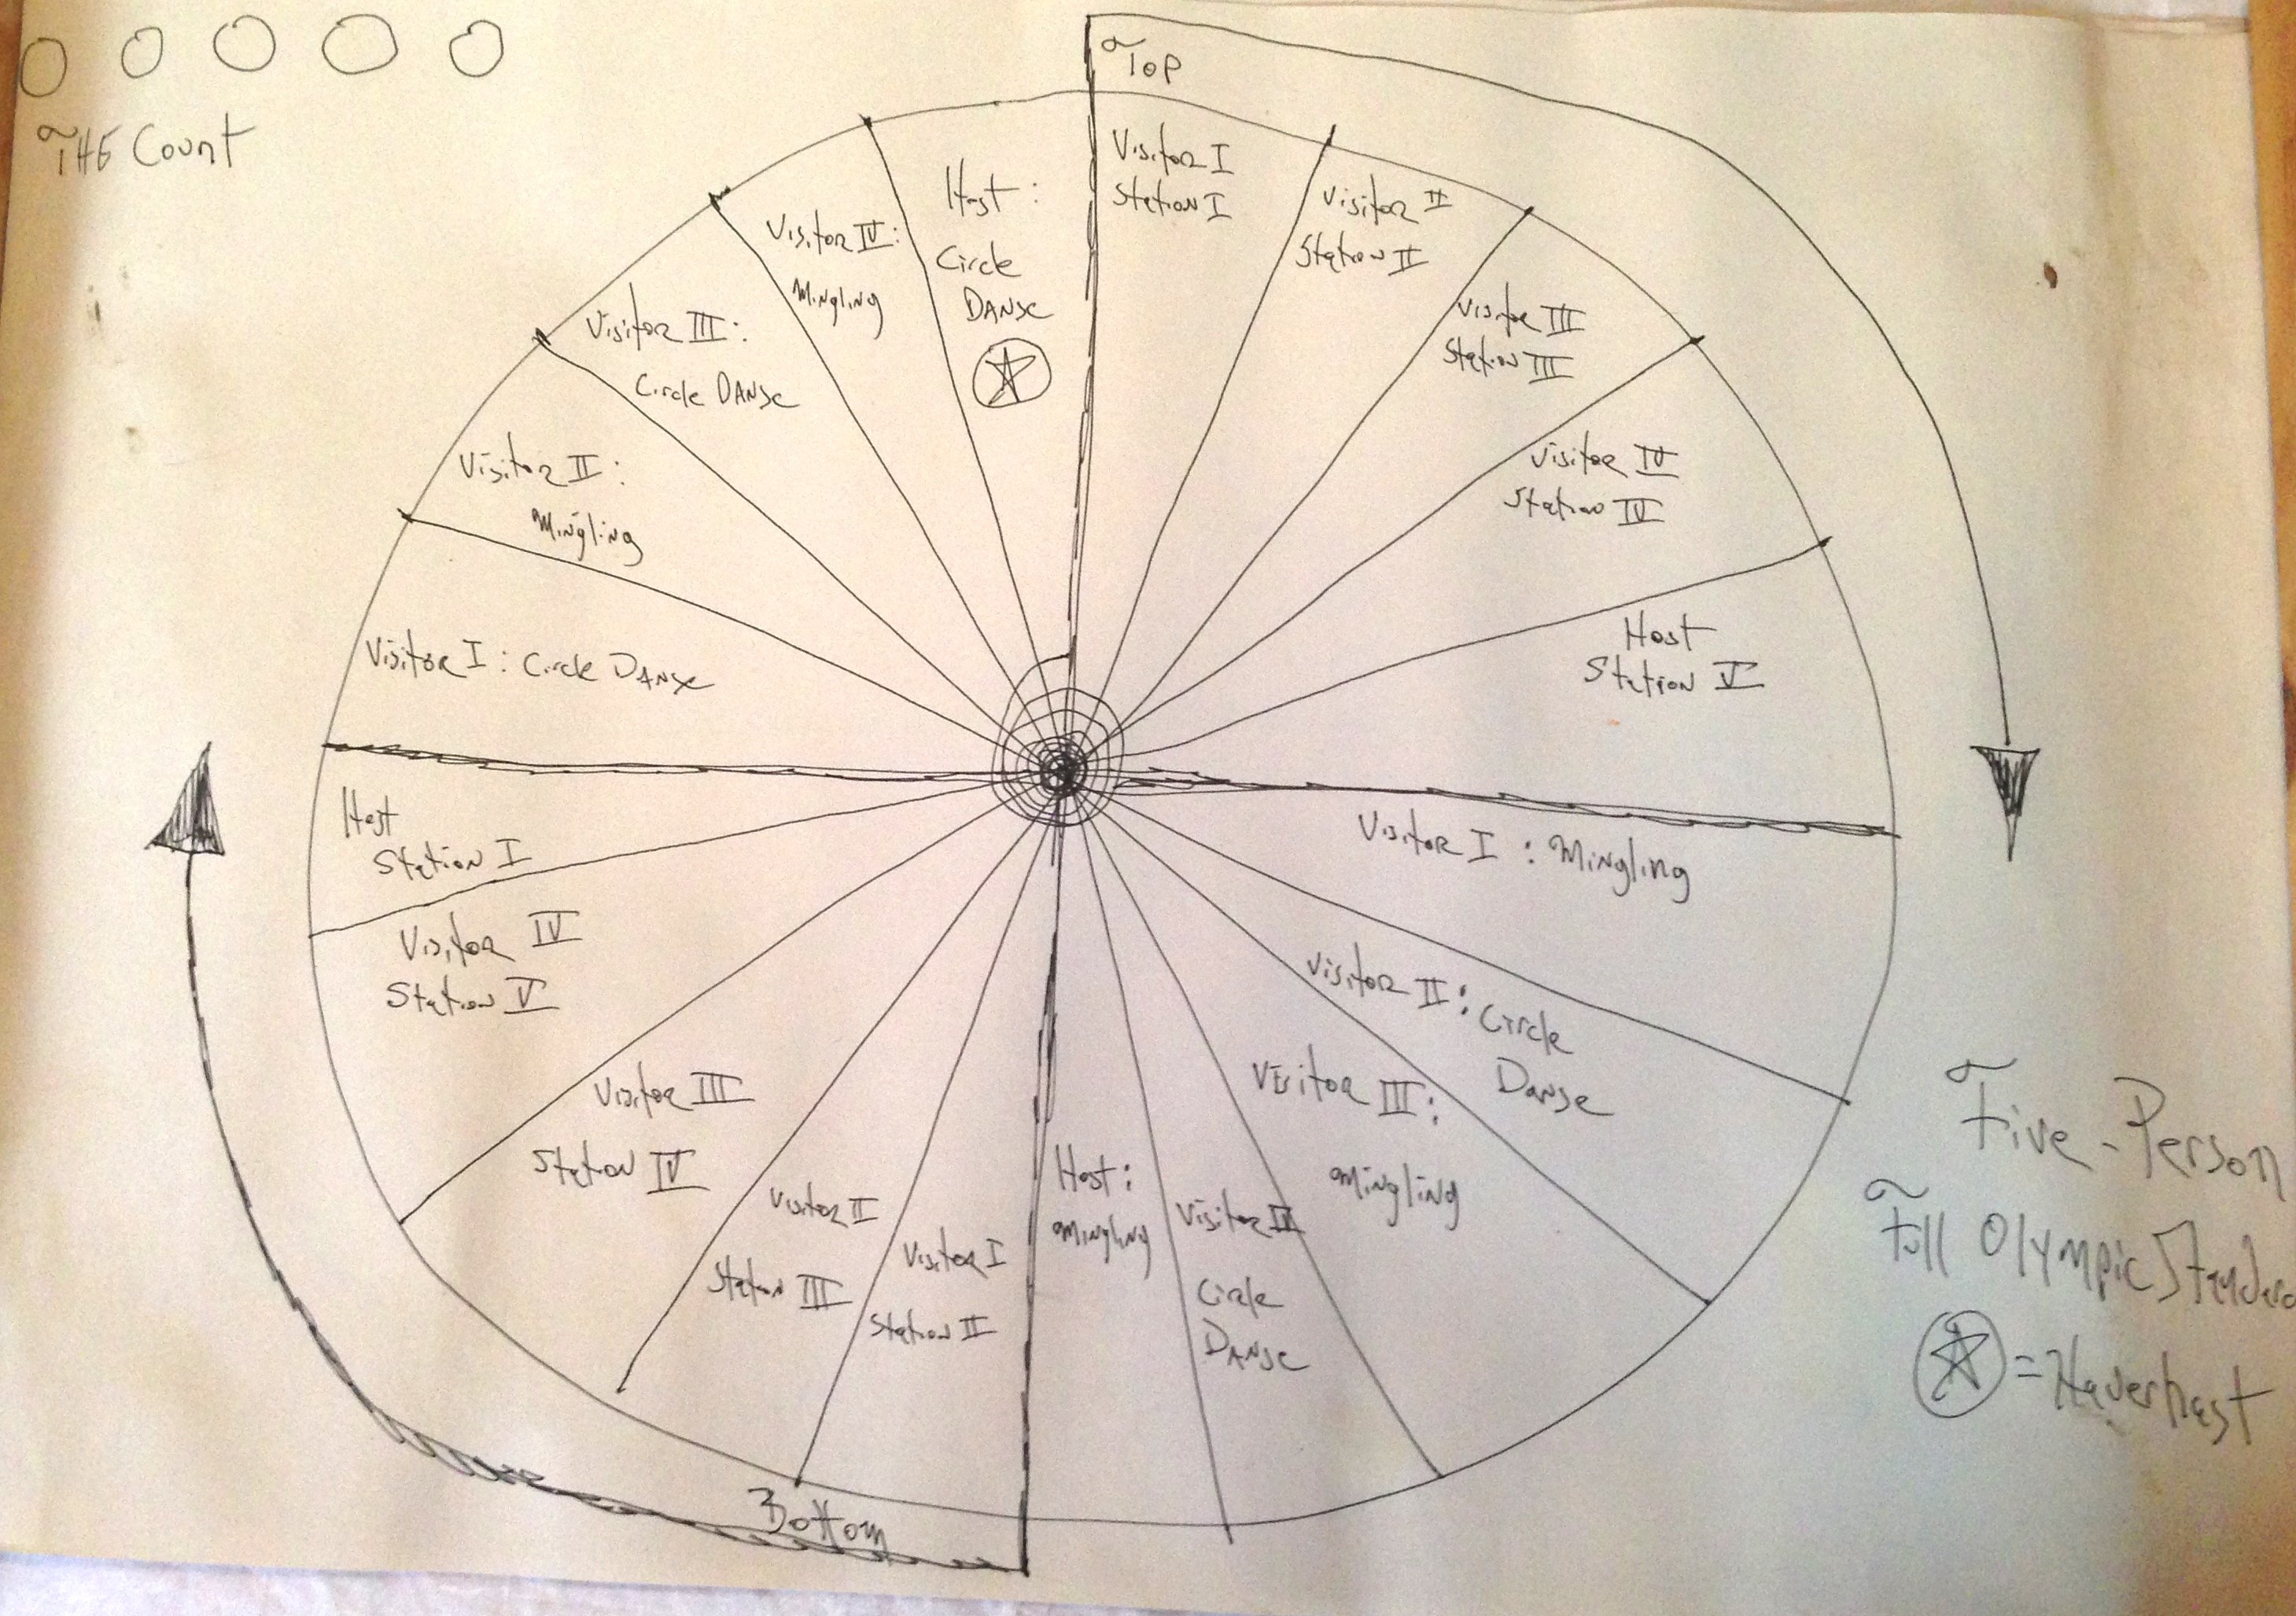 THE Count
Top
Visitor I
Station I
Visitor II
Station II
Visitor III
Station III
Visitor IV
Station IV
Host
Station V
Visitor I : Mingling
Visitor II : Circle
Danse
Visitor III :
mingling
Visitor IV
Circle
Danse
Host :
mingling
Visitor I
Station II
Visitor II
Station III
Visitor III
Station IV
Visitor IV
Station V
Host
Station I
Visitor I : Circle Danse
Visitor II :
Mingling
Visitor III :
Circle Danse
Visitor IV :
Mingling
Host :
Circle
Danse
Bottom
Five-Person
Full Olympic Standard
= Haverhast